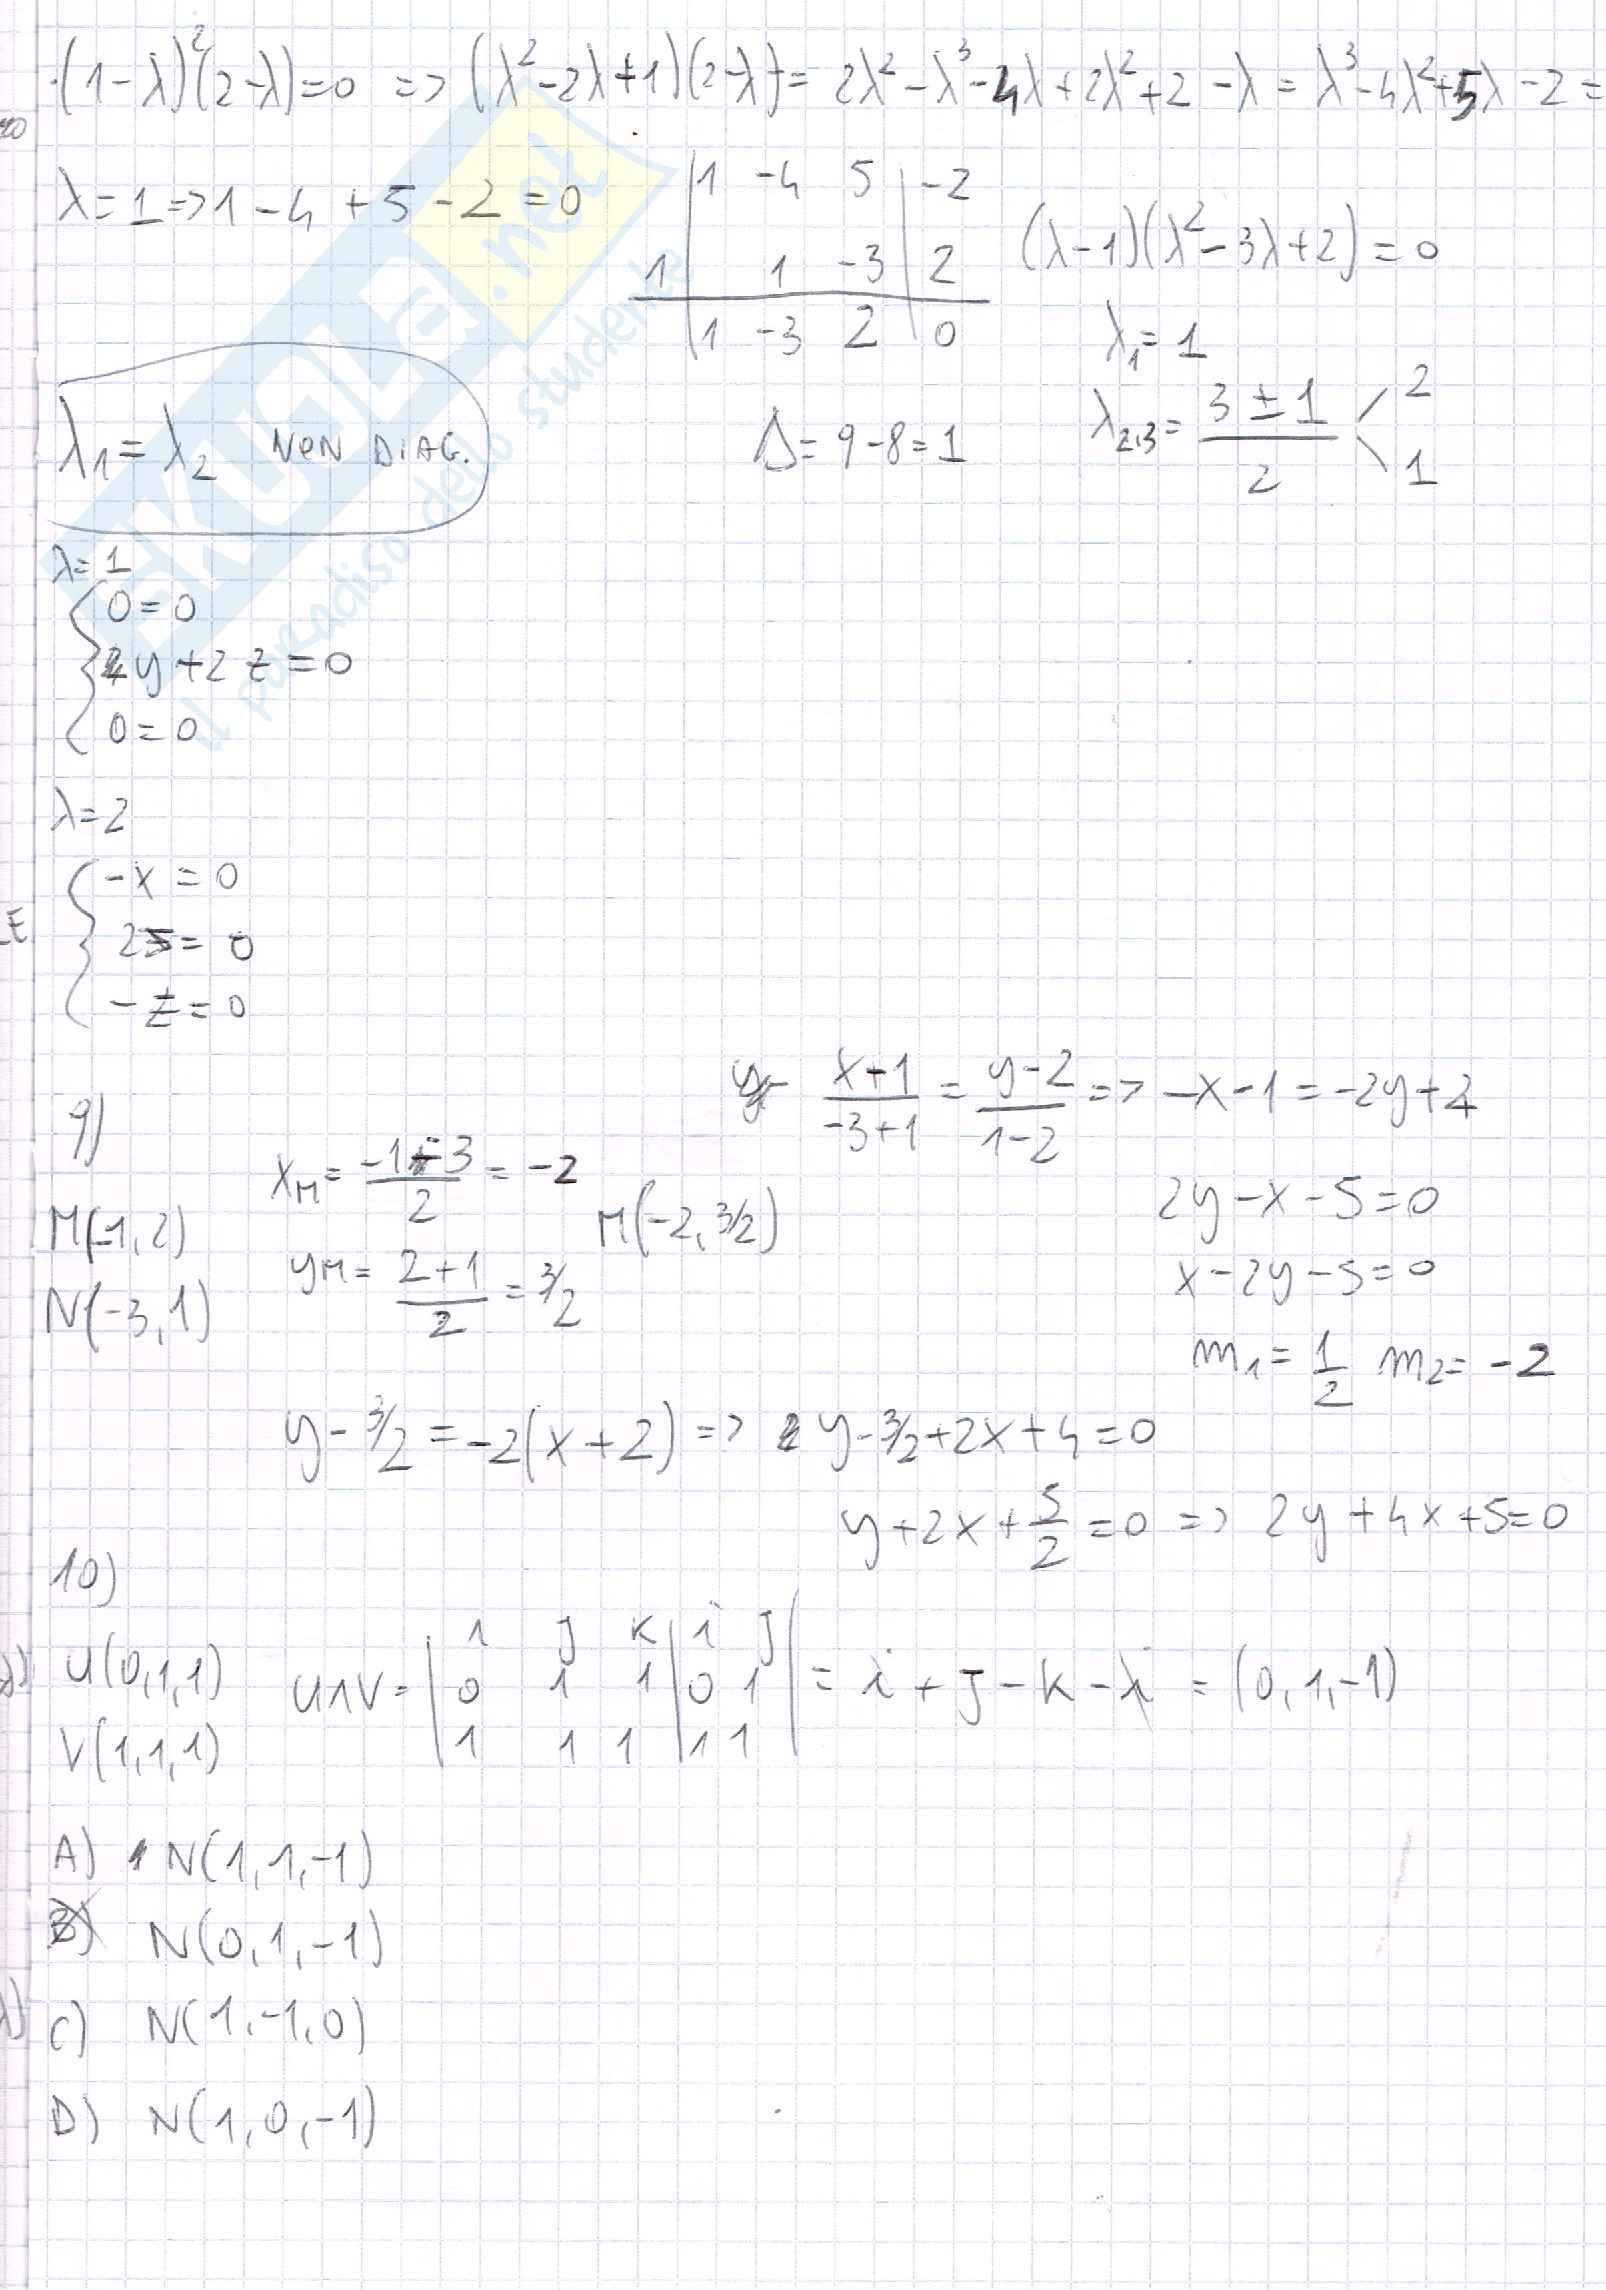 ·(1-λ)²(2-λ)=0 => (λ²-2λ+1)(2-λ)= 2λ²-λ³-4λ+2λ²+2-λ = λ³-4λ²+5λ-2=
λ=1=>1-4+5-2=0
1 -4 5 | -2
1 | 1 -3 | 2
1 -3 2 | 0
(λ-1)(λ²-3λ+2)=0
λ₁=1
Δ=9-8=1
λ₂,₃= (3±1)/2 2 1
λ₁=λ₂ NON DIAG.
λ=1
{ 0=0
y+2z=0
0=0
λ=2
{ -x=0
2z=0
-z=0
SKUOLA.net
il paradiso dello studente
9)
M(-1,2)
N(-3,1)
x_M= (-1-3)/2 = -2
y_M= (2+1)/2 = 3/2
M(-2,3/2)
(x+1)/(-3+1) = (y-2)/(1-2) => -x-1=-2y+4
2y-x-5=0
x-2y-5=0
m₁=1/2 m₂=-2
y-3/2=-2(x+2) => y-3/2+2x+4=0
y+2x+5/2=0 => 2y+4x+5=0
10)
U(0,1,1)
V(1,1,1)
U∧V= | i j k | i j |
0 1 1 | 0 1
1 1 1 | 1 1
= i+j-k-i = (0,1,-1)
A) N(1,1,-1)
B) N(0,1,-1)
C) N(1,-1,0)
D) N(1,0,-1)